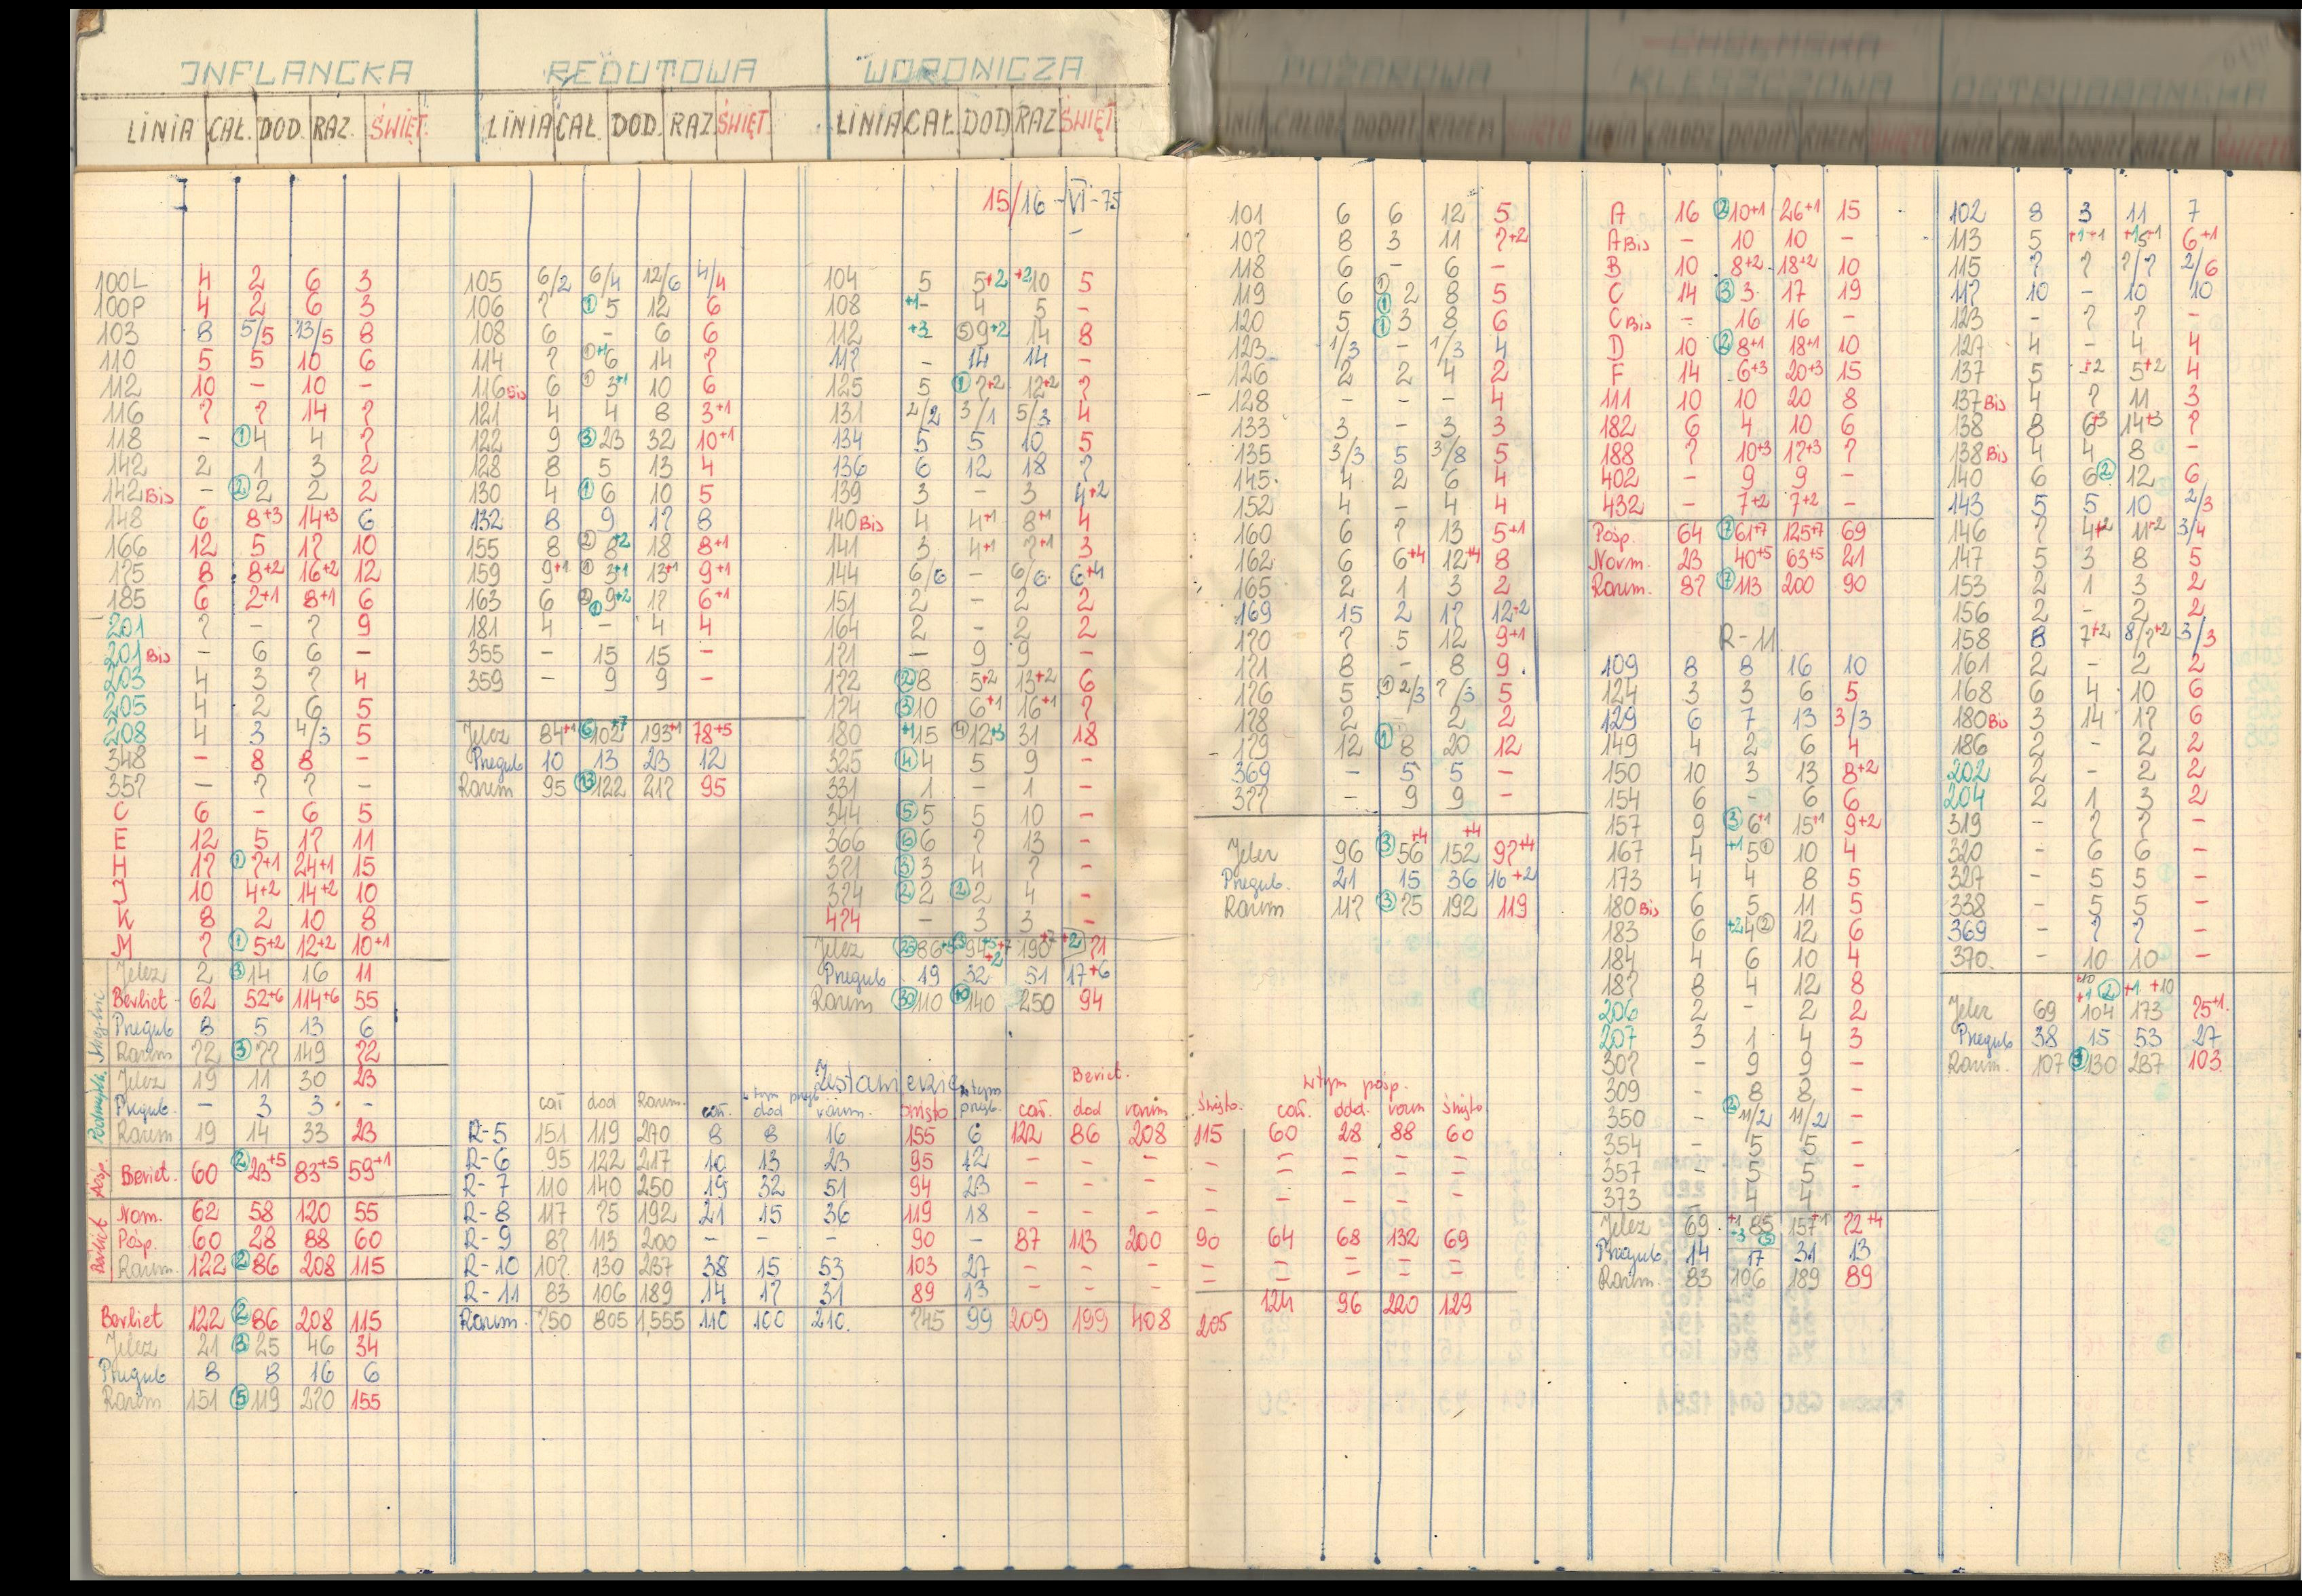 INFLANCKA
LINIA CAŁ. DOD. RAZ. ŚWIĘT.
100L 4 2 6 3
100P 4 2 6 3
103 8 5/5 13/5 8
110 5 5 10 6
112 10 - 10 -
116 7 7 14 7
118 - ①4 4 7
142 2 1 3 2
142 Bis - ②2 2 2
148 6 8+3 14+3 6
166 12 5 17 10
175 8 8+2 16+2 12
185 6 2+1 8+1 6
201 7 - 7 9
201 Bis - 6 6 -
203 4 3 7 4
205 4 2 6 5
208 4 3 4/3 5
348 - 8 8 -
357 - 7 7 -
C 6 - 6 5
E 12 5 17 11
H 17 ①7+1 24+1 15
J 10 4+2 14+2 10
K 8 2 10 8
M 7 ①5+2 12+2 10+1
Jelcz 2 ③14 16 11
Berliet 62 52+6 114+6 55
Przegub 8 5 13 6
Razem 72 ③77 149 72
Jelcz 19 11 30 23
Przegub. - 3 3 -
Razem 19 14 33 23
Pośp. Berliet. 60 ②23+5 83+5 59+1
Berliet
Norm. 62 58 120 55
Pośp. 60 28 88 60
Razem. 122 ②86 208 115
Berliet 122 ②86 208 115
Jelcz 21 ③25 46 34
Przegub 8 8 16 6
Razem 151 ⑤119 270 155
REDUTOWA
LINIA CAŁ. DOD. RAZ ŚWIĘT.
105 6/2 6/4 12/6 4/4
106 7 ①5 12 6
108 6 - 6 6
114 7 ①+1 6 14 7
116 Bis 6 ①3+1 10 6
121 4 4 8 3+1
122 9 ③23 32 10+1
128 8 5 13 4
130 4 ①6 10 5
132 8 9 17 8
155 8 ②8+2 18 8+1
159 9+1 ①3+1 13+1 9+1
163 6 ②①9+2 17 6+1
181 4 - 4 4
355 - 15 15 -
359 - 9 9 -
Jelcz 84+1 ⑥102+7 193+1 78+5
Przegub 10 13 23 12
Razem 95 ⑬122 217 95
WORONICZA
LINIA CAŁ DOD RAZ ŚWIĘT
15/16-VI-75
104 5 5+2 +2 10 5
108 +1- 4 5 -
112 +3 ⑤9+2 14 8
117 - 14 14 -
125 5 ①7+2 12+2 7
131 2/2 3/1 5/3 4
134 5 5 10 5
136 6 12 18 7
139 3 - 3 4+2
140 Bis 4 4+1 8+1 4
141 3 4+1 7+1 3
144 6/6 - 6/6 6+4
151 2 - 2 2
164 2 - 2 2
171 - 9 9 -
172 ②8 5+2 13+2 6
174 ③10 6+1 16+1 7
180 +1 15 ④12+3 31 18
325 ④4 5 9 -
331 1 - 1 -
344 ⑤5 5 10 -
366 ⑥6 7 13 -
371 ③3 4 7 -
374 ②2 ②2 4 -
474 - 3 3 -
Przegub 19 32 51 17+6
Razem ㉚110 ⑩140 250 94
Zestawienie
w tym przeg. w tym Berliet. w tym pośp.
cał dod Razem. cał. dod razem. święto przeg. cał. dod razem święto. cał. dod. razem święto
R-5 151 119 270 8 8 16 155 6 122 86 208 115 60 28 88 60
R-6 95 122 217 10 13 23 95 12 - - - - - - - -
R-7 110 140 250 19 32 51 94 23 - - - - - - - -
R-8 117 75 192 21 15 36 119 18 - - - - - - - -
R-9 87 113 200 - - - 90 - 87 113 200 90 64 68 132 69
R-10 107 130 237 38 15 53 103 27 - - - - - - - -
R-11 83 106 189 14 17 31 89 13 - - - - - - - -
Razem 750 805 1,555 110 100 210. 745 99 209 199 408 205 124 96 220 129
101 6 6 12 5
107 8 3 11 7+2
118 6 - 6 -
119 6 ①2 8 5
120 5 ①3 8 6
123 1/3 - 1/3 4
126 2 2 4 2
128 - - - 4
133 3 - 3 3
135 3/3 5 3/8 5
145 4 2 6 4
152 4 - 4 4
160 6 7 13 5+1
162 6 6+4 12+4 8
165 2 1 3 2
169 15 2 17 12+2
170 7 5 12 9+1
171 8 - 8 9
176 5 ①2/3 7/3 5
178 2 - 2 2
179 12 ①8 20 12
369 - 5 5 -
377 - 9 9 -
Jelcz 96 ③56+4 152+4 97+4
Przegub. 21 15 36 16+2
Razem 117 ③75 192 119
KLESZCZOWA
A 16 ②10+1 26+1 15
A Bis - 10 10 -
B 10 8+2 18+2 10
C 14 ③3 17 19
C Bis - 16 16 -
D 10 ②8+1 18+1 10
F 14 6+3 20+3 15
111 10 10 20 8
182 6 4 10 6
188 7 10+3 17+3 7
402 - 9 9 -
432 - 7+2 7+2 -
Pośp. 64 ⑦61+7 125+7 69
Norm. 23 40+5 63+5 21
Razem. 87 ⑦113 200 90
R-11
109 8 8 16 10
124 3 3 6 5
129 6 7 13 3/3
149 4 2 6 4
150 10 3 13 8+2
154 6 - 6 6
157 9 ③6+1 15+1 9+2
167 4 +1 5① 10 4
173 4 4 8 5
180 Bis 6 5 11 5
183 6 +2 4② 12 6
184 4 6 10 4
187 8 4 12 8
206 2 - 2 2
207 3 1 4 3
307 - 9 9 -
309 - 8 8 -
350 - ②11/2 11/2 -
354 - 5 5 -
357 - 5 5 -
373 - 4 4 -
Jelcz 69 +1 +3 85 157+1 72+4
Przegub. 14 17 31 13
Razem. 83 106 189 89
OSTROBRAMSKA
102 8 3 11 7
113 5 +1+1 +1 5+1 6+1
115 7 7 7/7 2/6
117 10 - 10 10
123 - 7 7 -
127 4 - 4 4
137 5 +2 5+2 4
137 Bis 4 7 11 3
138 8 6+3 14+3 7
138 Bis 4 4 8 -
140 6 6② 12 6
143 5 5 10 2/3
146 7 4+2 11+2 3/4
147 5 3 8 5
153 2 1 3 2
156 2 - 2 2
158 8 7+2 8/7+2 3/3
161 2 - 2 2
168 6 4 10 6
180 Bis 3 14 17 6
186 2 - 2 2
202 2 - 2 2
204 2 1 3 2
319 - 7 7 -
320 - 6 6 -
327 - 5 5 -
338 - 5 5 -
369 - 7 7 -
370. - 10 10 -
+10 +1 ② +1 +10
Jelcz 69 104 173 75+1
Przegub 38 15 53 27
Razem. 107 130 237 103